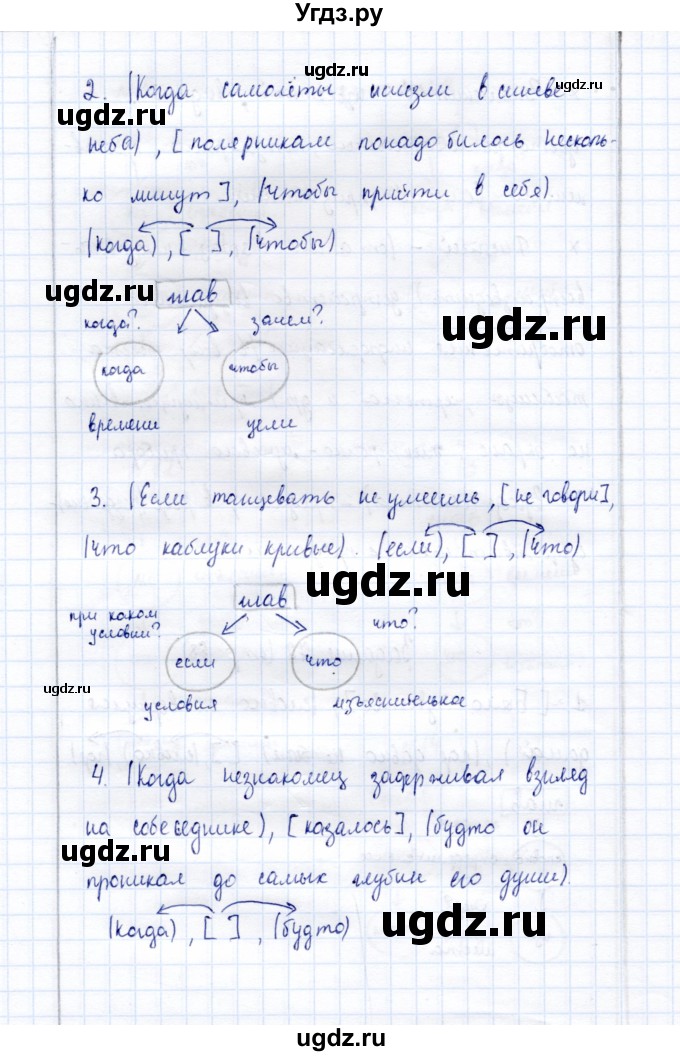 Угдз.ру
2. (Когда самолёты исчезли в синеве
неба), [полярникам понадобилось несколь-
ко минут], (чтобы прийти в себя).
(когда), [ ], (чтобы)
глав
когда? зачем?
когда чтобы
времени цели
3. (Если танцевать не умеешь, [не говори],
(что каблуки кривые). (если), [ ], (что)
глав
при каком что?
условии?
если что
условия изъяснительное
4. (Когда незнакомец задерживал взгляд
на собеседнике), [казалось], (будто он
проникал до самых глубин его души).
(когда), [ ], (будто)
ugdz.ru
ugdz.ru
ugdz.ru
ugdz.ru
ugdz.ru
ugdz.ru
ugdz.ru
ugdz.ru
ugdz.ru
ugdz.ru
ugdz.ru
ugdz.ru
ugdz.ru